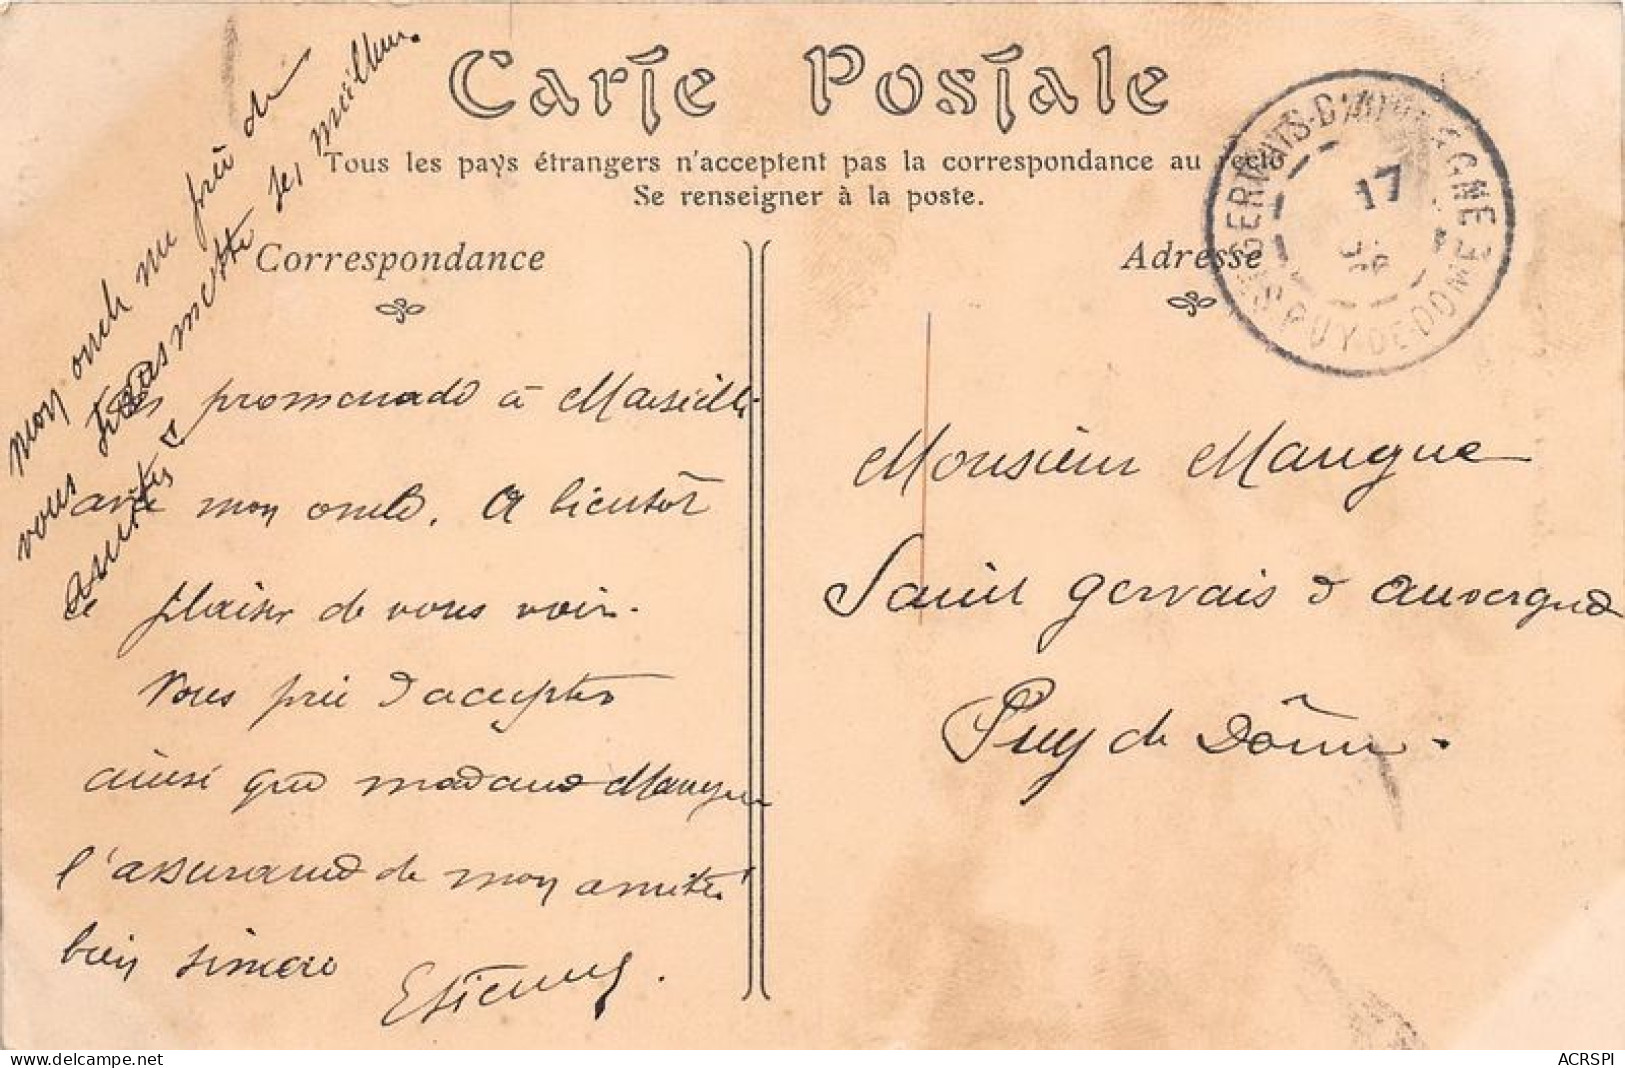 Carte Postale
Tous les pays étrangers n'acceptent pas la correspondance au recto
Se renseigner à la poste.
Correspondance
Adresse
ST GERVAIS-D'AUVERGNE
PUY-DE-DOME
17
promenade à Marseille
avec mon oncle. A bientôt
le plaisir de vous voir.
Vous prie d'accepter
ainsi que madame Mangue
l'assurance de mon amitié
bien sincère
Etienne.
mon oncle me prie de
vous transmettre ses meilleures
amitiés
Monsieur Mangue
Saint Gervais d'auvergne
Puy de Dôme.
ACRSPI